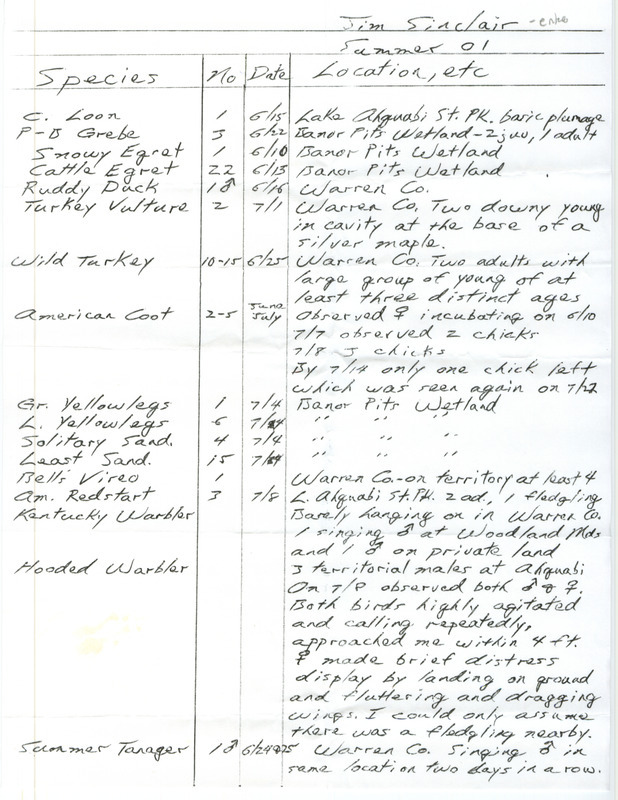 Jim Sinclair
Summer 01
Species No Date Location, etc
C. Loon 1 6/15 Lake Ahquabi St. PK. basic plumage
P-B Grebe 3 6/22 Banor Pits Wetland - 2 juv, 1 adult
Snowy Egret 1 6/10 Banor Pits Wetland
Cattle Egret 22 6/13 Banor Pits Wetland
Ruddy Duck 1♂ 6/16 Warren Co.
Turkey Vulture 2 7/1 Warren Co. Two downy young
in cavity at the base of a
silver maple.
Wild Turkey 10-15 6/25 Warren Co. Two adults with
large group of young of at
least three distinct ages
American Coot 2-5 June July Observed ♀ incubating on 6/10
7/7 observed 2 chicks
7/8 3 chicks
By 7/14 only one chick left
which was seen again on 7/22
Gr. Yellowlegs 1 7/4 Banor Pits Wetland
L. Yellowlegs 6 7/4 " " "
Solitary Sand. 4 7/4 " " "
Least Sand. 15 7/4 " " "
Bell's Vireo 1 Warren Co. - on territory at least 4
Am. Redstart 3 7/8 L. Ahquabi St. PK. 2 ad, 1 fledgling
Kentucky Warbler Barely hanging on in Warren Co.
1 singing ♂ at Woodland Mds
and 1 ♂ on private land
Hooded Warbler 3 territorial males at Ahquabi
On 7/8 observed both ♂ & ♀.
Both birds highly agitated
and calling repeatedly,
approached me within 4 ft.
♀ made brief distress
display by landing on ground
and fluttering and dragging
wings. I could only assume
there was a fledgling nearby.
Summer Tanager 1♂ 6/24&25 Warren Co. Singing ♂ in
same location two days in a row.